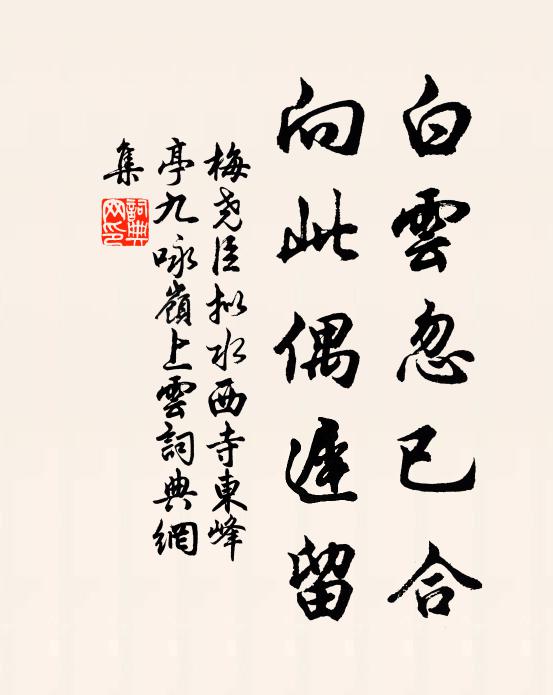 白雲忽已合
向此偶遲留
梅堯臣拟水西寺東峰
亭九咏嶺上雲詞典網
集
詞典
网印